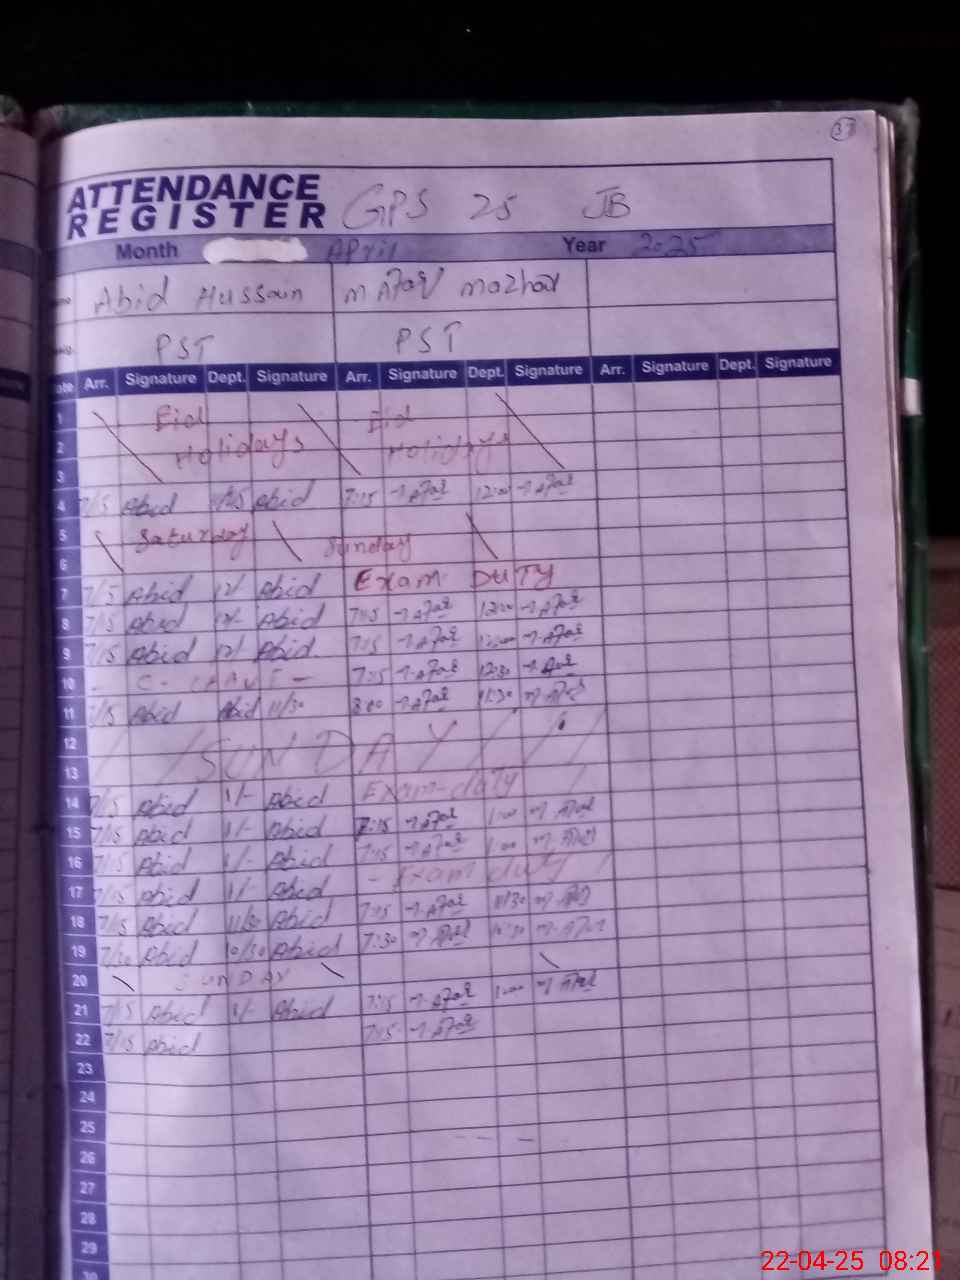 37
ATTENDANCE
REGISTER GPS 25 JB
Month April Year 2025
Abid Hussain mazhar
PST PST
Arr. Signature Dept. Signature Arr. Signature Dept. Signature Arr. Signature Dept. Signature
1 Eid Eid
2 Holidays Holidays
3
4 7/15 Abid Abid 7:15 12:00
5 Saturday Sunday
6
7 7/15 Abid 12/- Abid Exam DUTY
8 7/15 Abid 12/- Abid 7:15 12:00
9 7/15 Abid 12/ Abid 7:15 12:00
10 - C. LEAVE - 7:15 12:00
11 7/15 Abid Abid 11/30 8:00 11:30
12 SUNDAY
13
14 7/15 Abid 1/- Abid Exam-duty
15 7/15 Abid 1/- Abid 7:15 1:00
16 7/15 Abid 1/- Abid 7:15 1:00
17 7/15 Abid 1/- Abid - Exam duty
18 7/15 Abid 11/30 Abid 7:15 11/30
19 7/30 Abid 10/30 Abid 7:30 10:30
20 SUNDAY
21 7/15 Abid 1/- Abid 7:15 1:00
22 7/15 Abid 7:15
23
24
25
26
27
28
29
22-04-25 08:21